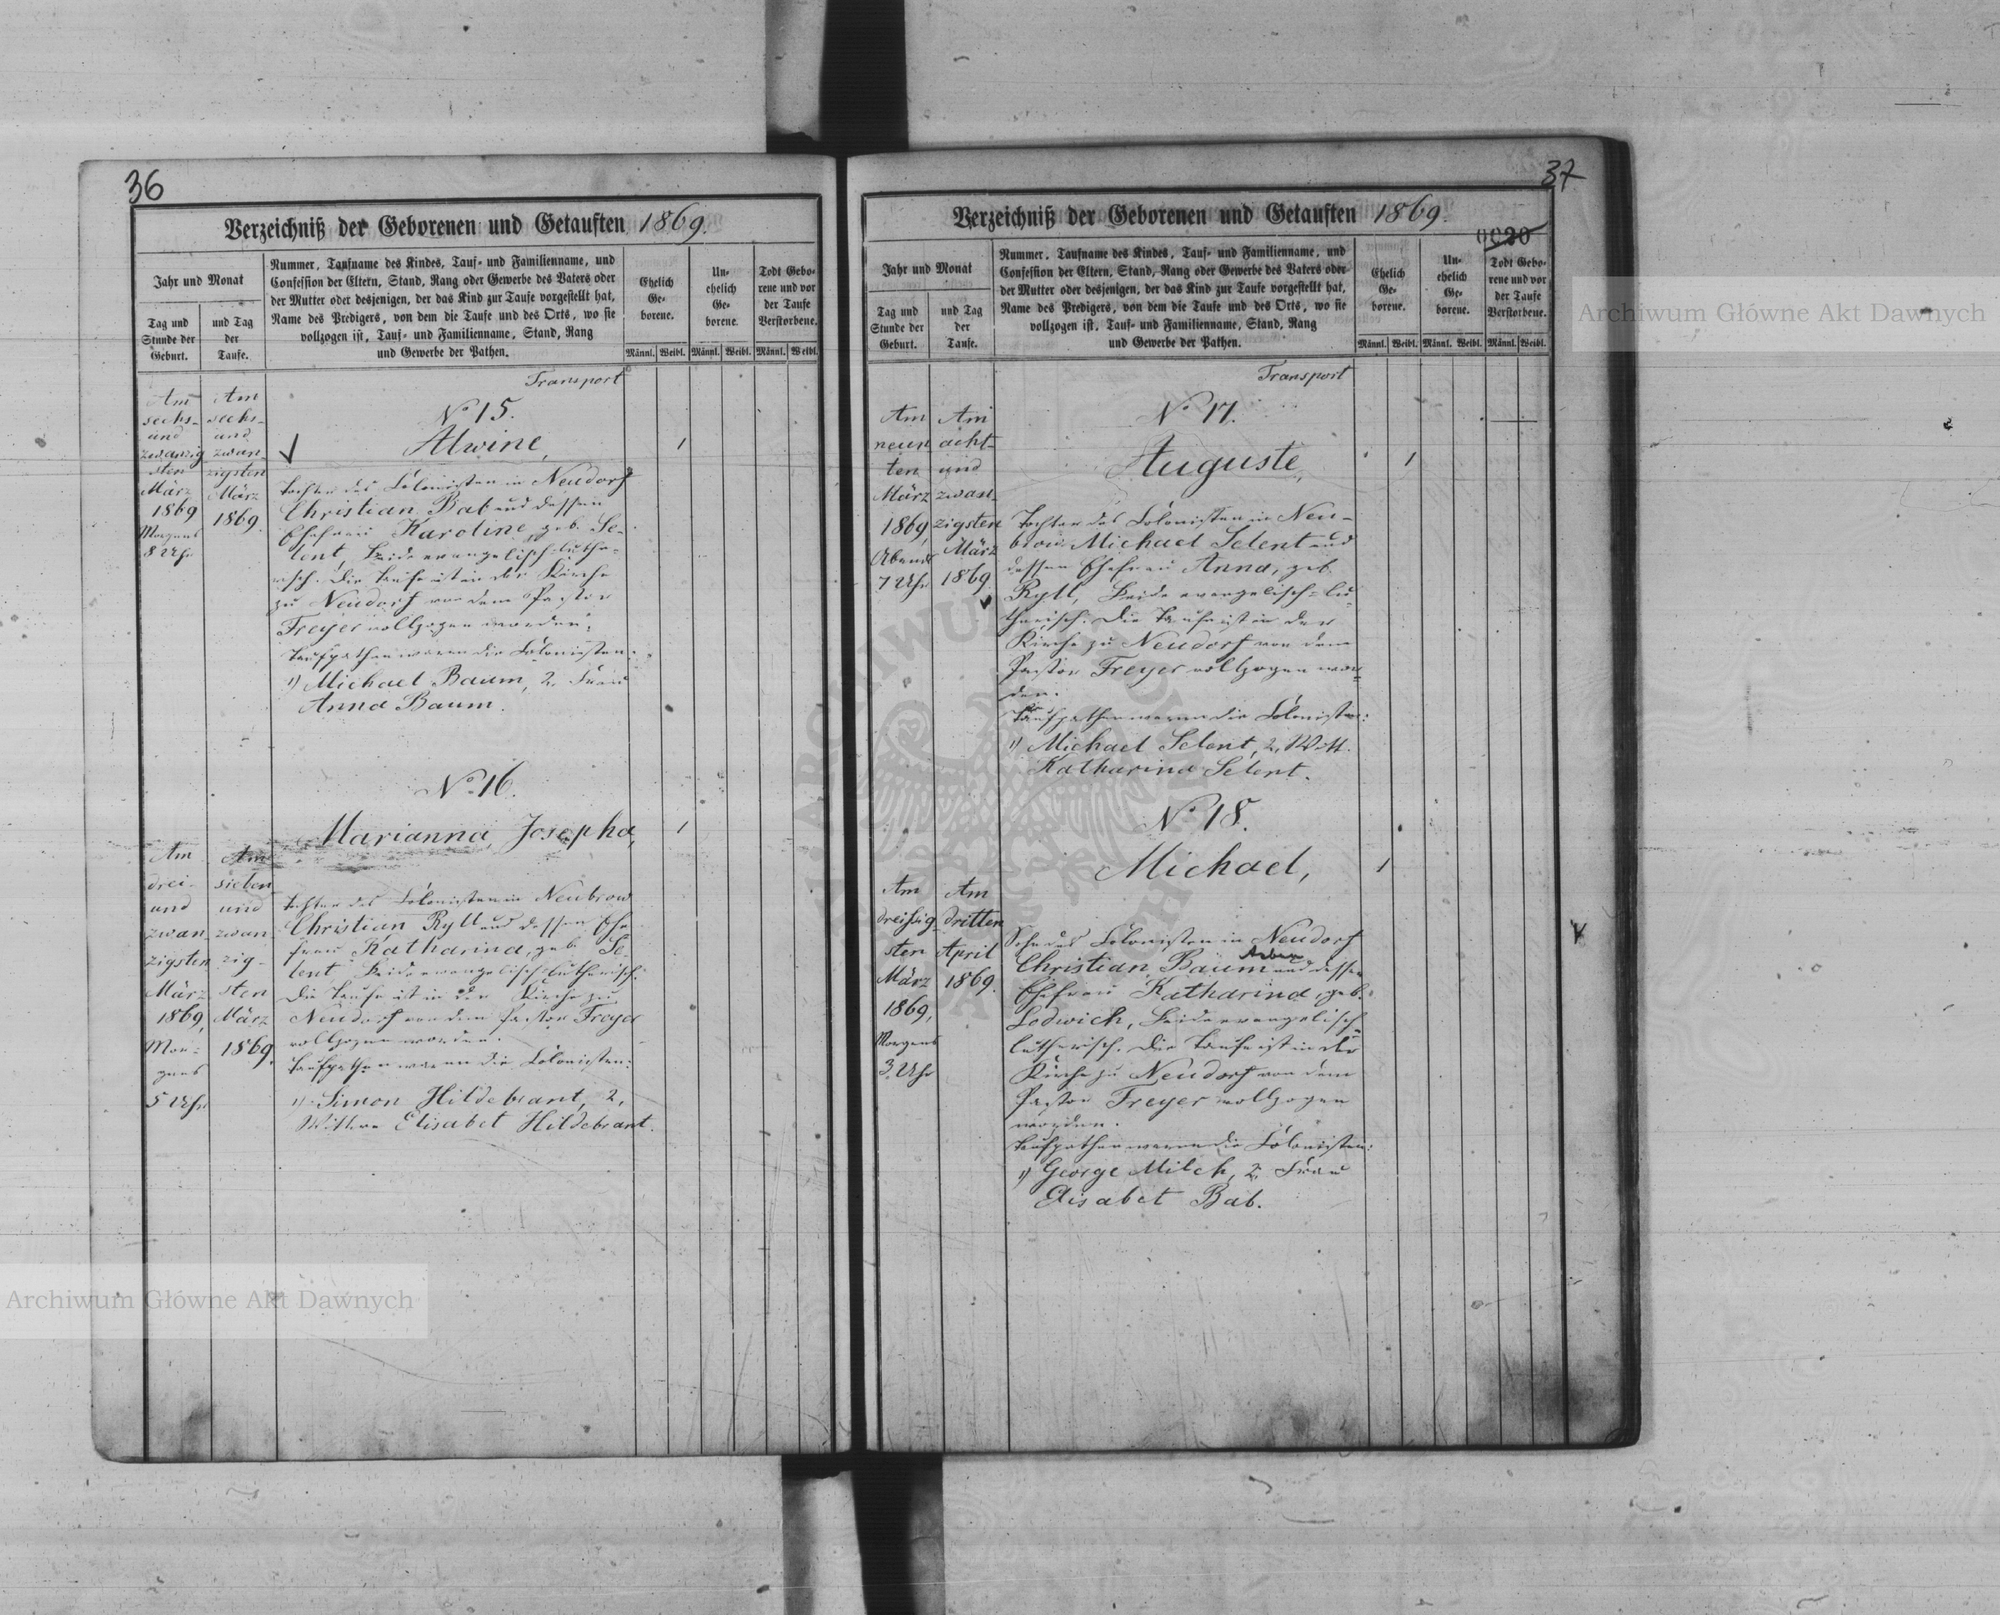 36
Verzeichniß der Geborenen und Getauften 1869.
Jahr und Monat
Tag und
Stunde der
Geburt.
und Tag
der
Taufe.
Nummer, Taufname des Kindes, Tauf- und Familienname, und
Confession der Eltern, Stand, Rang oder Gewerbe des Vaters oder
der Mutter oder desjenigen, der das Kind zur Taufe vorgestellt hat,
Name des Predigers, von dem die Taufe und des Orts, wo sie
vollzogen ist, Tauf- und Familienname, Stand, Rang
und Gewerbe der Pathen.
Ehelich
Ge-
borene.
Un-
ehelich
Ge-
borene.
Todt Gebo-
rene und vor
der Taufe
Verstorbene.
Männl. Weibl. Männl. Weibl. Männl. Weibl.
Transport
Am
sechs-
und
zwanzig
sten
März
1869
Morgens
8 Uhr
Am
sechs-
und
zwan-
zigsten
März
1869.
No 15.
Alwine,
1
Tochter des Colonisten in Neudorf
Christian Bab und dessen
Ehefrau Karoline, geb. Se-
lent, Beide evangelisch-luthe-
risch. Die Taufe ist in der Kirche
zu Neudorf von dem Pastor
Freyer vollzogen worden.
Taufpathen waren die Colonisten:
1) Michael Baum, 2, Frau
Anna Baum.
No 16.
Marianna, Josepha,
1
Am
drei-
und
zwan
zigsten
März
1869,
Mor-
gens
5 Uhr
Am
sieben
und
zwan
zig-
sten
März
1869.
Tochter des Colonisten in Neubrow
Christian Ryll und dessen Ehe
frau Katharina, geb. Se-
lent Beide evangelisch-lutherisch.
Die Taufe ist in der Kirche zu
Neudorf von dem Pastor Freyer
vollzogen worden.
Taufpathen waren die Colonisten:
1) Simon Hildebrant, 2,
Wittwe Elisabet Hildebrant.
37
Verzeichniß der Geborenen und Getauften 1869.
0020
Jahr und Monat
Tag und
Stunde der
Geburt.
und Tag
der
Taufe.
Nummer, Taufname des Kindes, Tauf- und Familienname, und
Confession der Eltern, Stand, Rang oder Gewerbe des Vaters oder
der Mutter oder desjenigen, der das Kind zur Taufe vorgestellt hat,
Name des Predigers, von dem die Taufe und des Orts, wo sie
vollzogen ist, Tauf- und Familienname, Stand, Rang
und Gewerbe der Pathen.
Ehelich
Ge-
borene.
Un-
ehelich
Ge-
borene.
Todt Gebo-
rene und vor
der Taufe
Verstorbene.
Männl. Weibl. Männl. Weibl. Männl. Weibl.
Transport
Am
neun
ten
März
1869,
Abends
7 Uhr
Am
acht-
und
zwan-
zigsten
März
1869.
No 17.
Auguste,
1
Tochter des Colonisten in Neu-
brow Michael Selent und
dessen Ehefrau Anna, geb.
Ryll, Beide evangelisch-lu-
therisch. Die Taufe ist in der
Kirche zu Neudorf von dem
Pastor Freyer vollzogen wor-
den.
Taufpathen waren die Colonisten:
1) Michael Selent, 2, Witt.
Katharina Selent.
No 18.
Michael,
1
Am
dreißig
sten
März
1869,
Morgens
3 Uhr
Am
dritten
April
1869.
Sohn des Colonisten in Neudorf
Christian Baum und dessen
Ehefrau Katharina, geb.
Lodwich, Beide evangelisch-
lutherisch. Die Taufe ist in der
Kirche zu Neudorf von dem
Pastor Freyer vollzogen
worden.
Taufpathen waren die Colonisten:
1) George Milch, 2, Frau
Elisabet Bab.
Archiwum Główne Akt Dawnych
Archiwum Główne Akt Dawnych